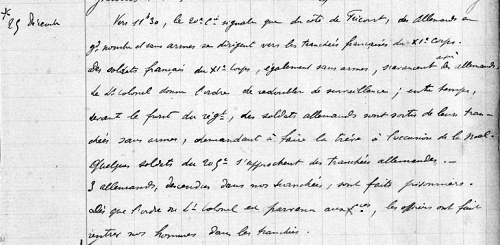 * 25 Décembre
Vers 11h30, le 20e Cie signale que du côté de Fricourt, des Allemands en
gd nombre et sans armes se dirigent vers les tranchées françaises du XIe Corps.
Des soldats français du XIe Corps, également sans armes, s'avancent les allemands.
Le Lt Colonel donne l'ordre de redoubler de surveillance; entre temps,
devant le front du régt, des soldats allemands sont sortis de leurs tran-
chées sans armes, demandant à faire la trève à l'occasion de la Noël.
Quelques soldats du 205e s'approchent des tranchées allemandes. —
3 allemands, descendus dans nos tranchées, sont faits prisonniers.
Dès que l'ordre du Lt Colonel est parvenu aux Cies, les officiers ont fait
rentrer nos hommes dans les tranchées.